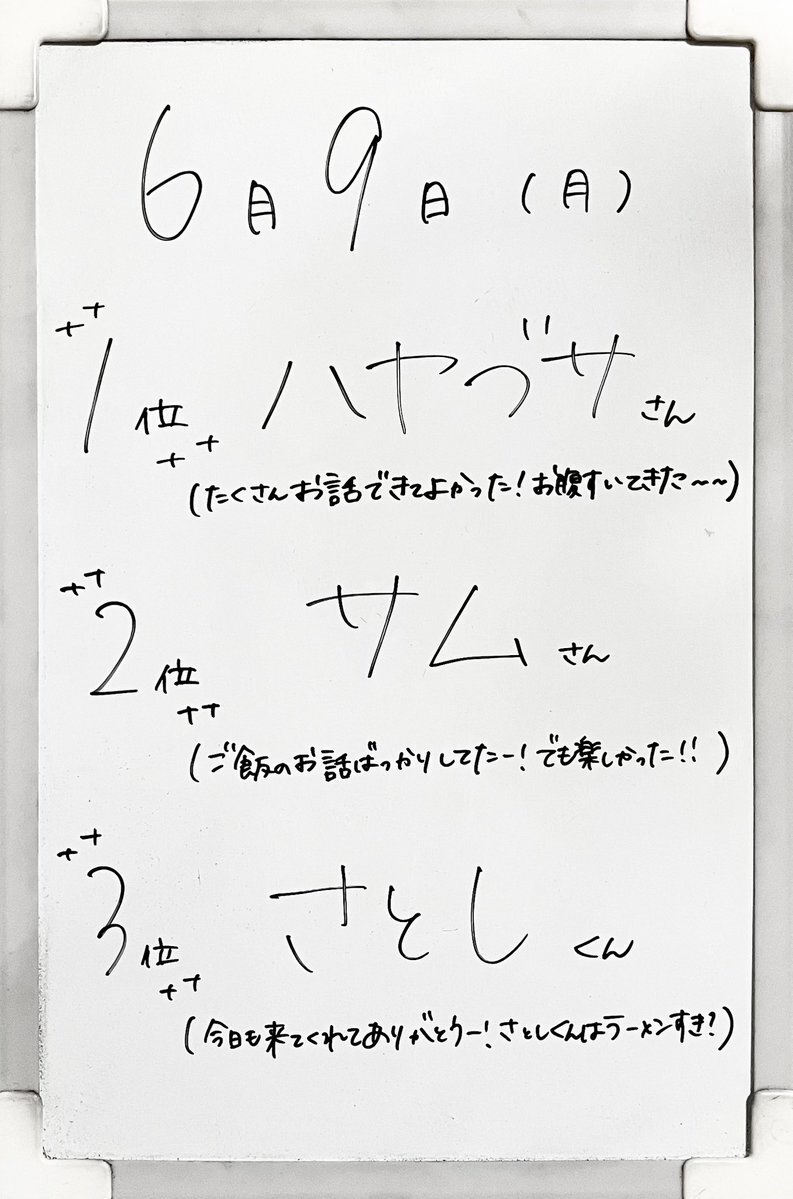 6月9日(月)
++
1位 ハヤブサさん
++
(たくさんお話できてよかった!お腹すいてきた〜〜)
++
2位 サムさん
++
(ご飯のお話ばっかりしてたー!でも楽しかった!!)
++
3位 さとしくん
++
(今日も来てくれてありがとうー!さとしくんはラーメンすき?)